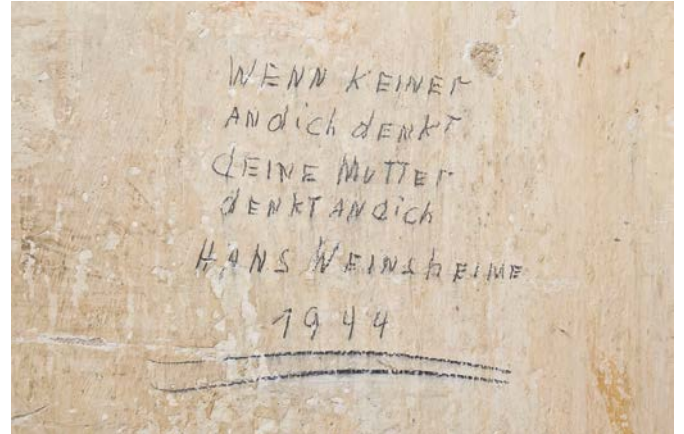 WENN KEINEr
ANdich dENKT
dEINE MuTTEr
dENKT ANdich
HANS WEINShEIME
1944